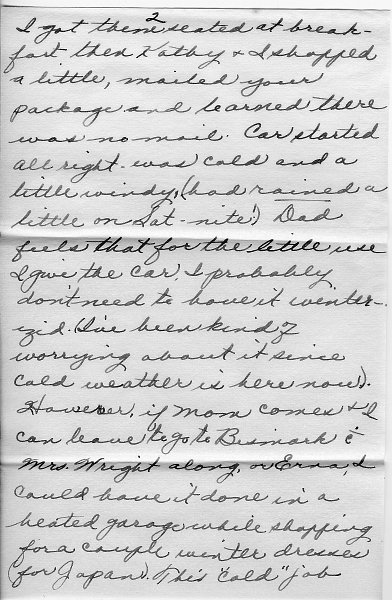 2
I got them seated at break-
fast then Kathy & I shopped
a little, mailed your
package and learned there
was no mail. Car started
all right - was cold and a
little windy, (had rained a
little on Sat - nite!) Dad
feels that for the little use
I give the car, I probably
don't need to have it winter-
izid. (I've been kind of
worrying about it since
cold weather is here now).
However, if Mom comes & I
can leave to go to Bismark c̄
Mrs. Wright along, or Erna, I
could have it done in a
heated garage while shopping
for a couple winter dresses
(for Japan). This "cold" job